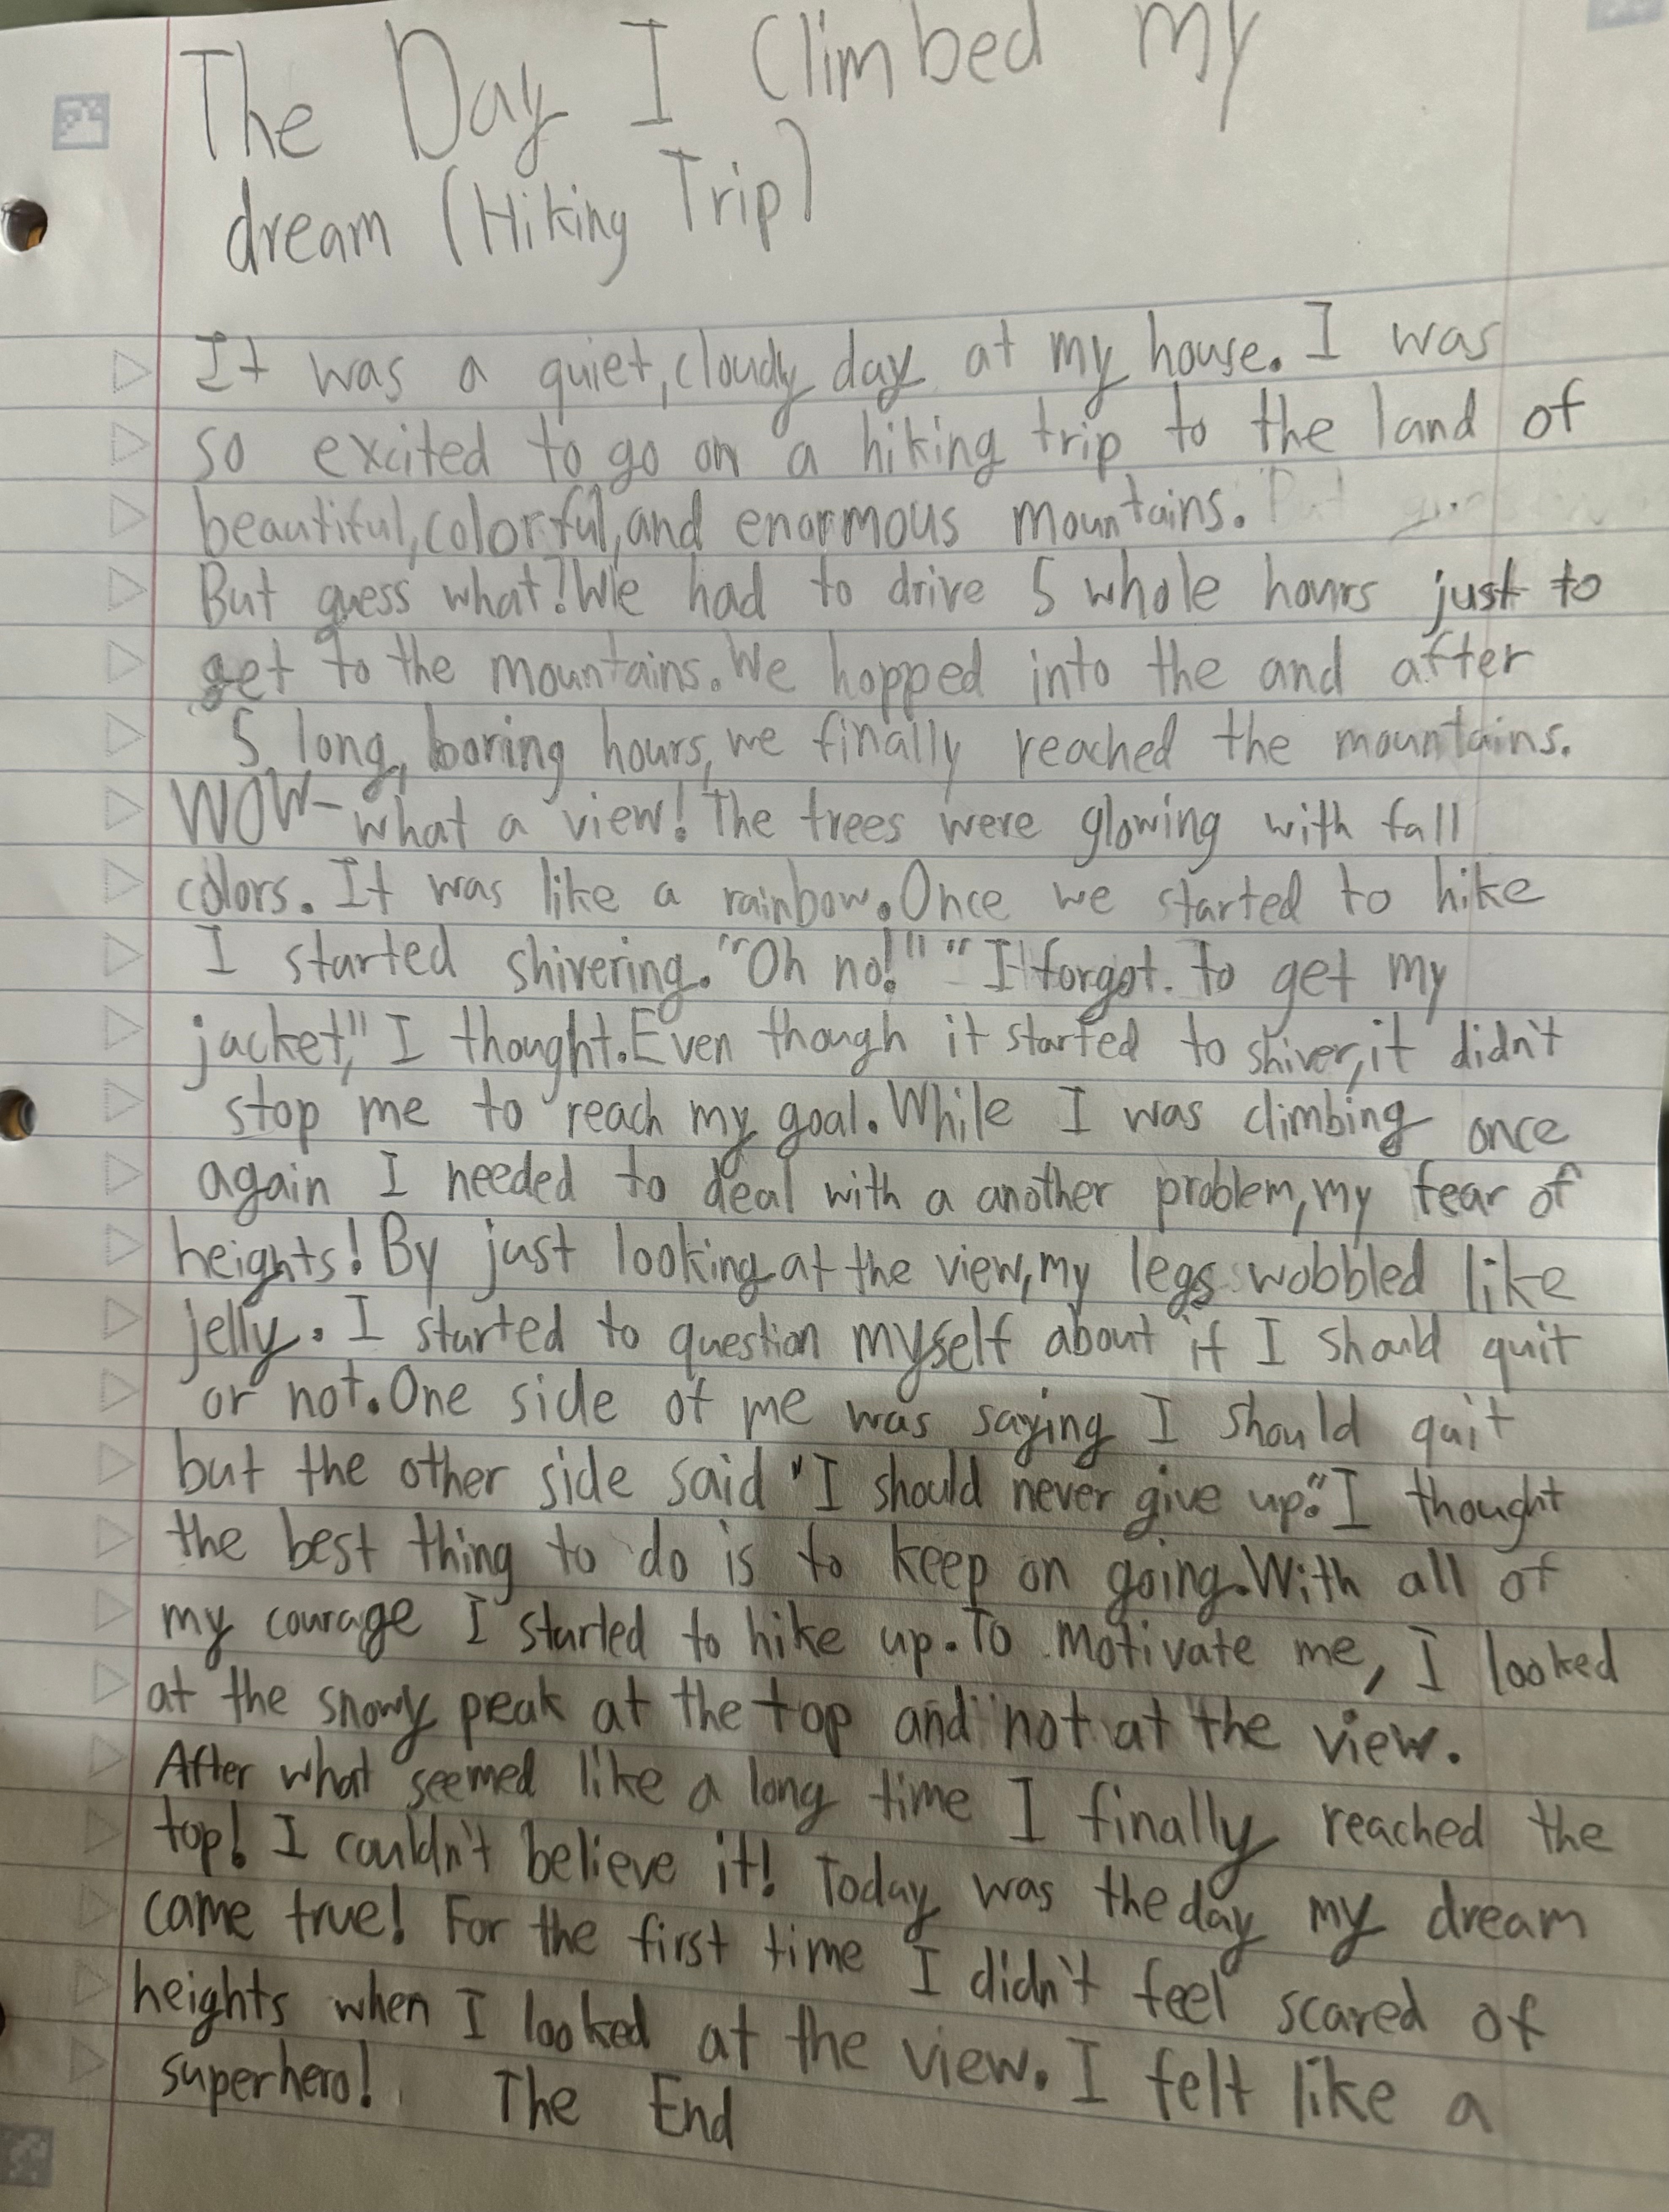 The Day I Climbed My
dream (Hiking Trip)
It was a quiet, cloudy day at my house. I was
so excited to go on a hiking trip to the land of
beautiful, colorful, and enormous mountains.
But guess what? We had to drive 5 whole hours just to
get to the mountains. We hopped into the and after
5 long, boring hours, we finally reached the mountains.
WOW- what a view! The trees were glowing with fall
colors. It was like a rainbow. Once we started to hike
I started shivering. "Oh no!" "I forgot to get my
jacket," I thought. Even though it started to shiver, it didn't
stop me to reach my goal. While I was climbing once
again I needed to deal with a another problem, my fear of
heights! By just looking at the view, my legs wobbled like
jelly. I started to question myself about if I should quit
or not. One side of me was saying I should quit
but the other side said "I should never give up." I thought
the best thing to do is to keep on going. With all of
my courage I started to hike up. To motivate me, I looked
at the snowy peak at the top and not at the view.
After what seemed like a long time I finally reached the
top! I couldn't believe it! Today was the day my dream
came true! For the first time I didn't feel scared of
heights when I looked at the view. I felt like a
superhero! The End